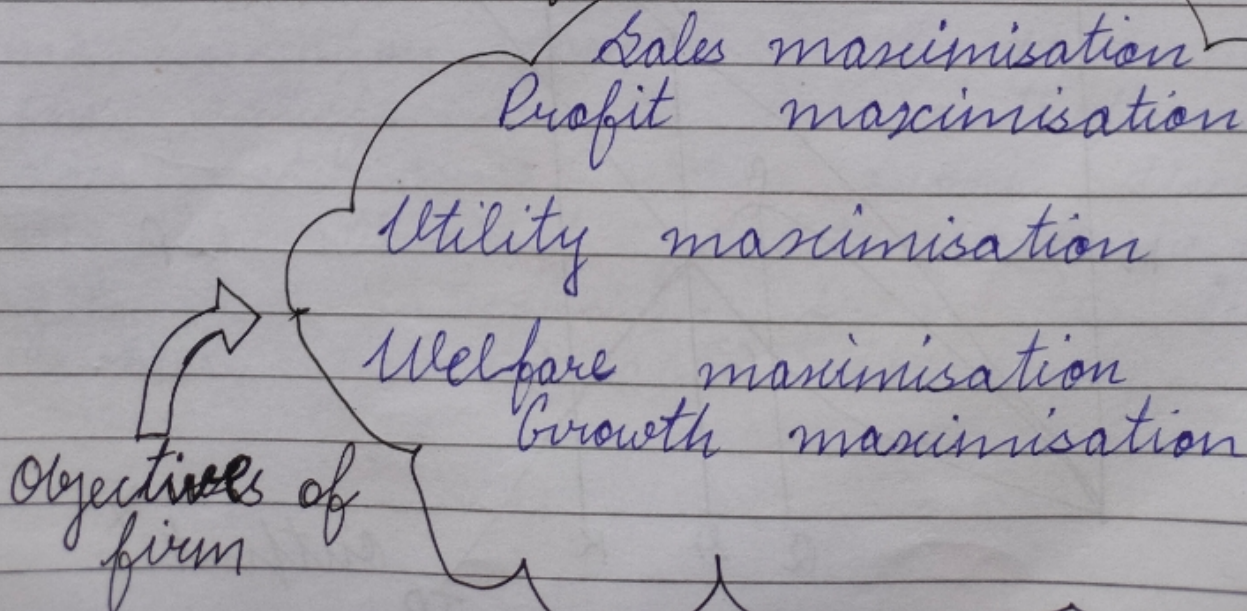 Sales maximisation
Profit maximisation
Utility maximisation
Welfare maximisation
Growth maximisation
Objectives of
firm